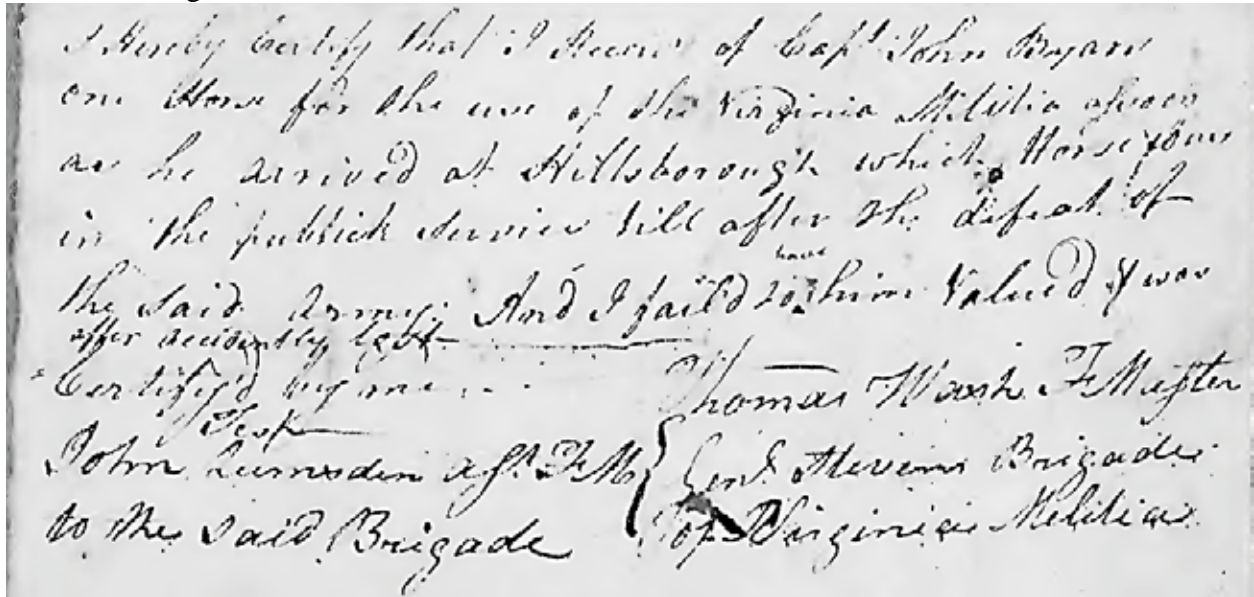 I Hereby Certify that I Receivd of Capt. John Bryan
one Horse for the use of the Virginia Militia assoon
as he arrived at Hillsborough which Horse
in the publick Service till after the defeat of
the said Army. And I fail'd to have him Valued & was
after accidently lost
Certify'd by me
Thomas Wash F Master
Test
John Lumsden asst. F M
Genl. Stevens Brigade
to the said Brigade
of Virginia Militia